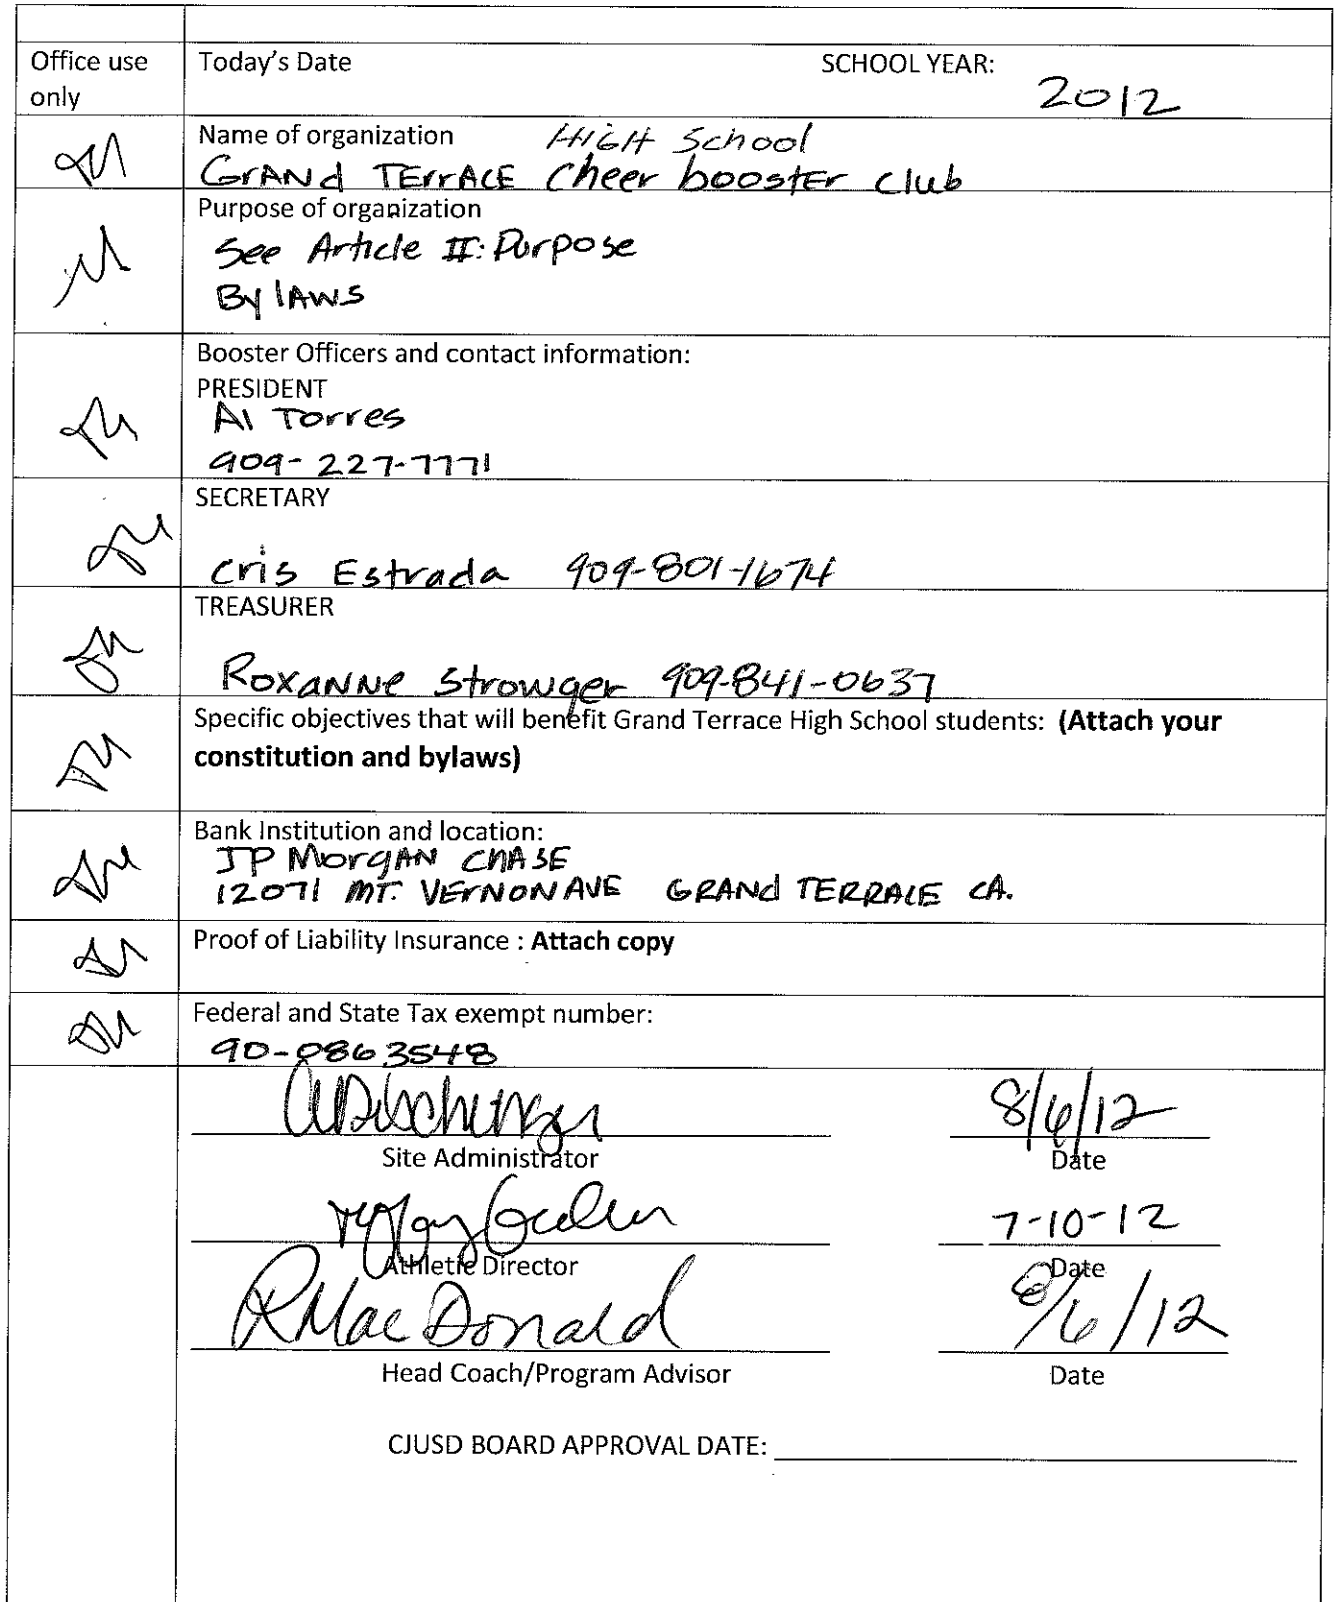 Office use only
Today's Date
SCHOOL YEAR:
2012
Name of organization
HIGH School
GrANd TErrACE Cheer booster club
Purpose of organization
See Article II: Purpose
By lAWS
Booster Officers and contact information:
PRESIDENT
Al Torres
909-227-7771
SECRETARY
Cris Estrada 909-801-1674
TREASURER
RoxaNNe Strowger 909-841-0637
Specific objectives that will benefit Grand Terrace High School students: (Attach your
constitution and bylaws)
Bank Institution and location:
JP MorgAN CHASE
12071 MT. VErNON AVE GRANd TERRACE CA.
Proof of Liability Insurance : Attach copy
Federal and State Tax exempt number:
90-0863548
8/6/12
Site Administrator
Date
7-10-12
Athletic Director
Date
RMacDonald
8/6/12
Head Coach/Program Advisor
Date
CJUSD BOARD APPROVAL DATE: